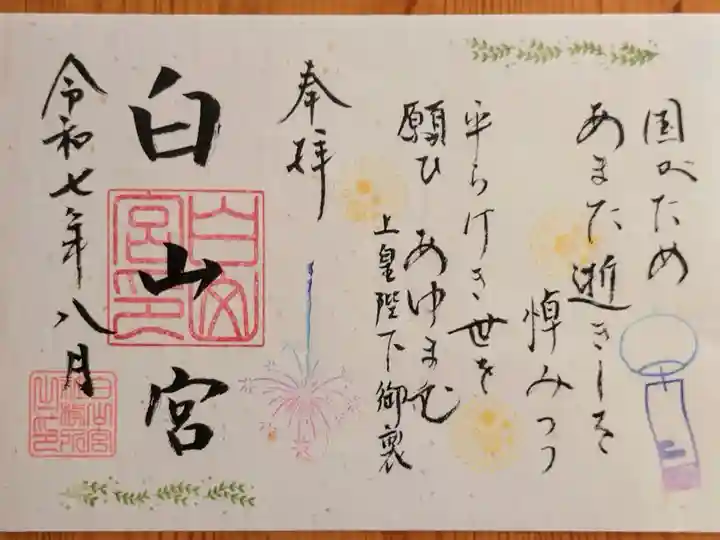 国がため
あまた逝きしを
悼みつつ
平らけき世を
願ひ
あゆまむ
上皇陛下御製
奉拝
白山宮
令和七年八月
白山宮印